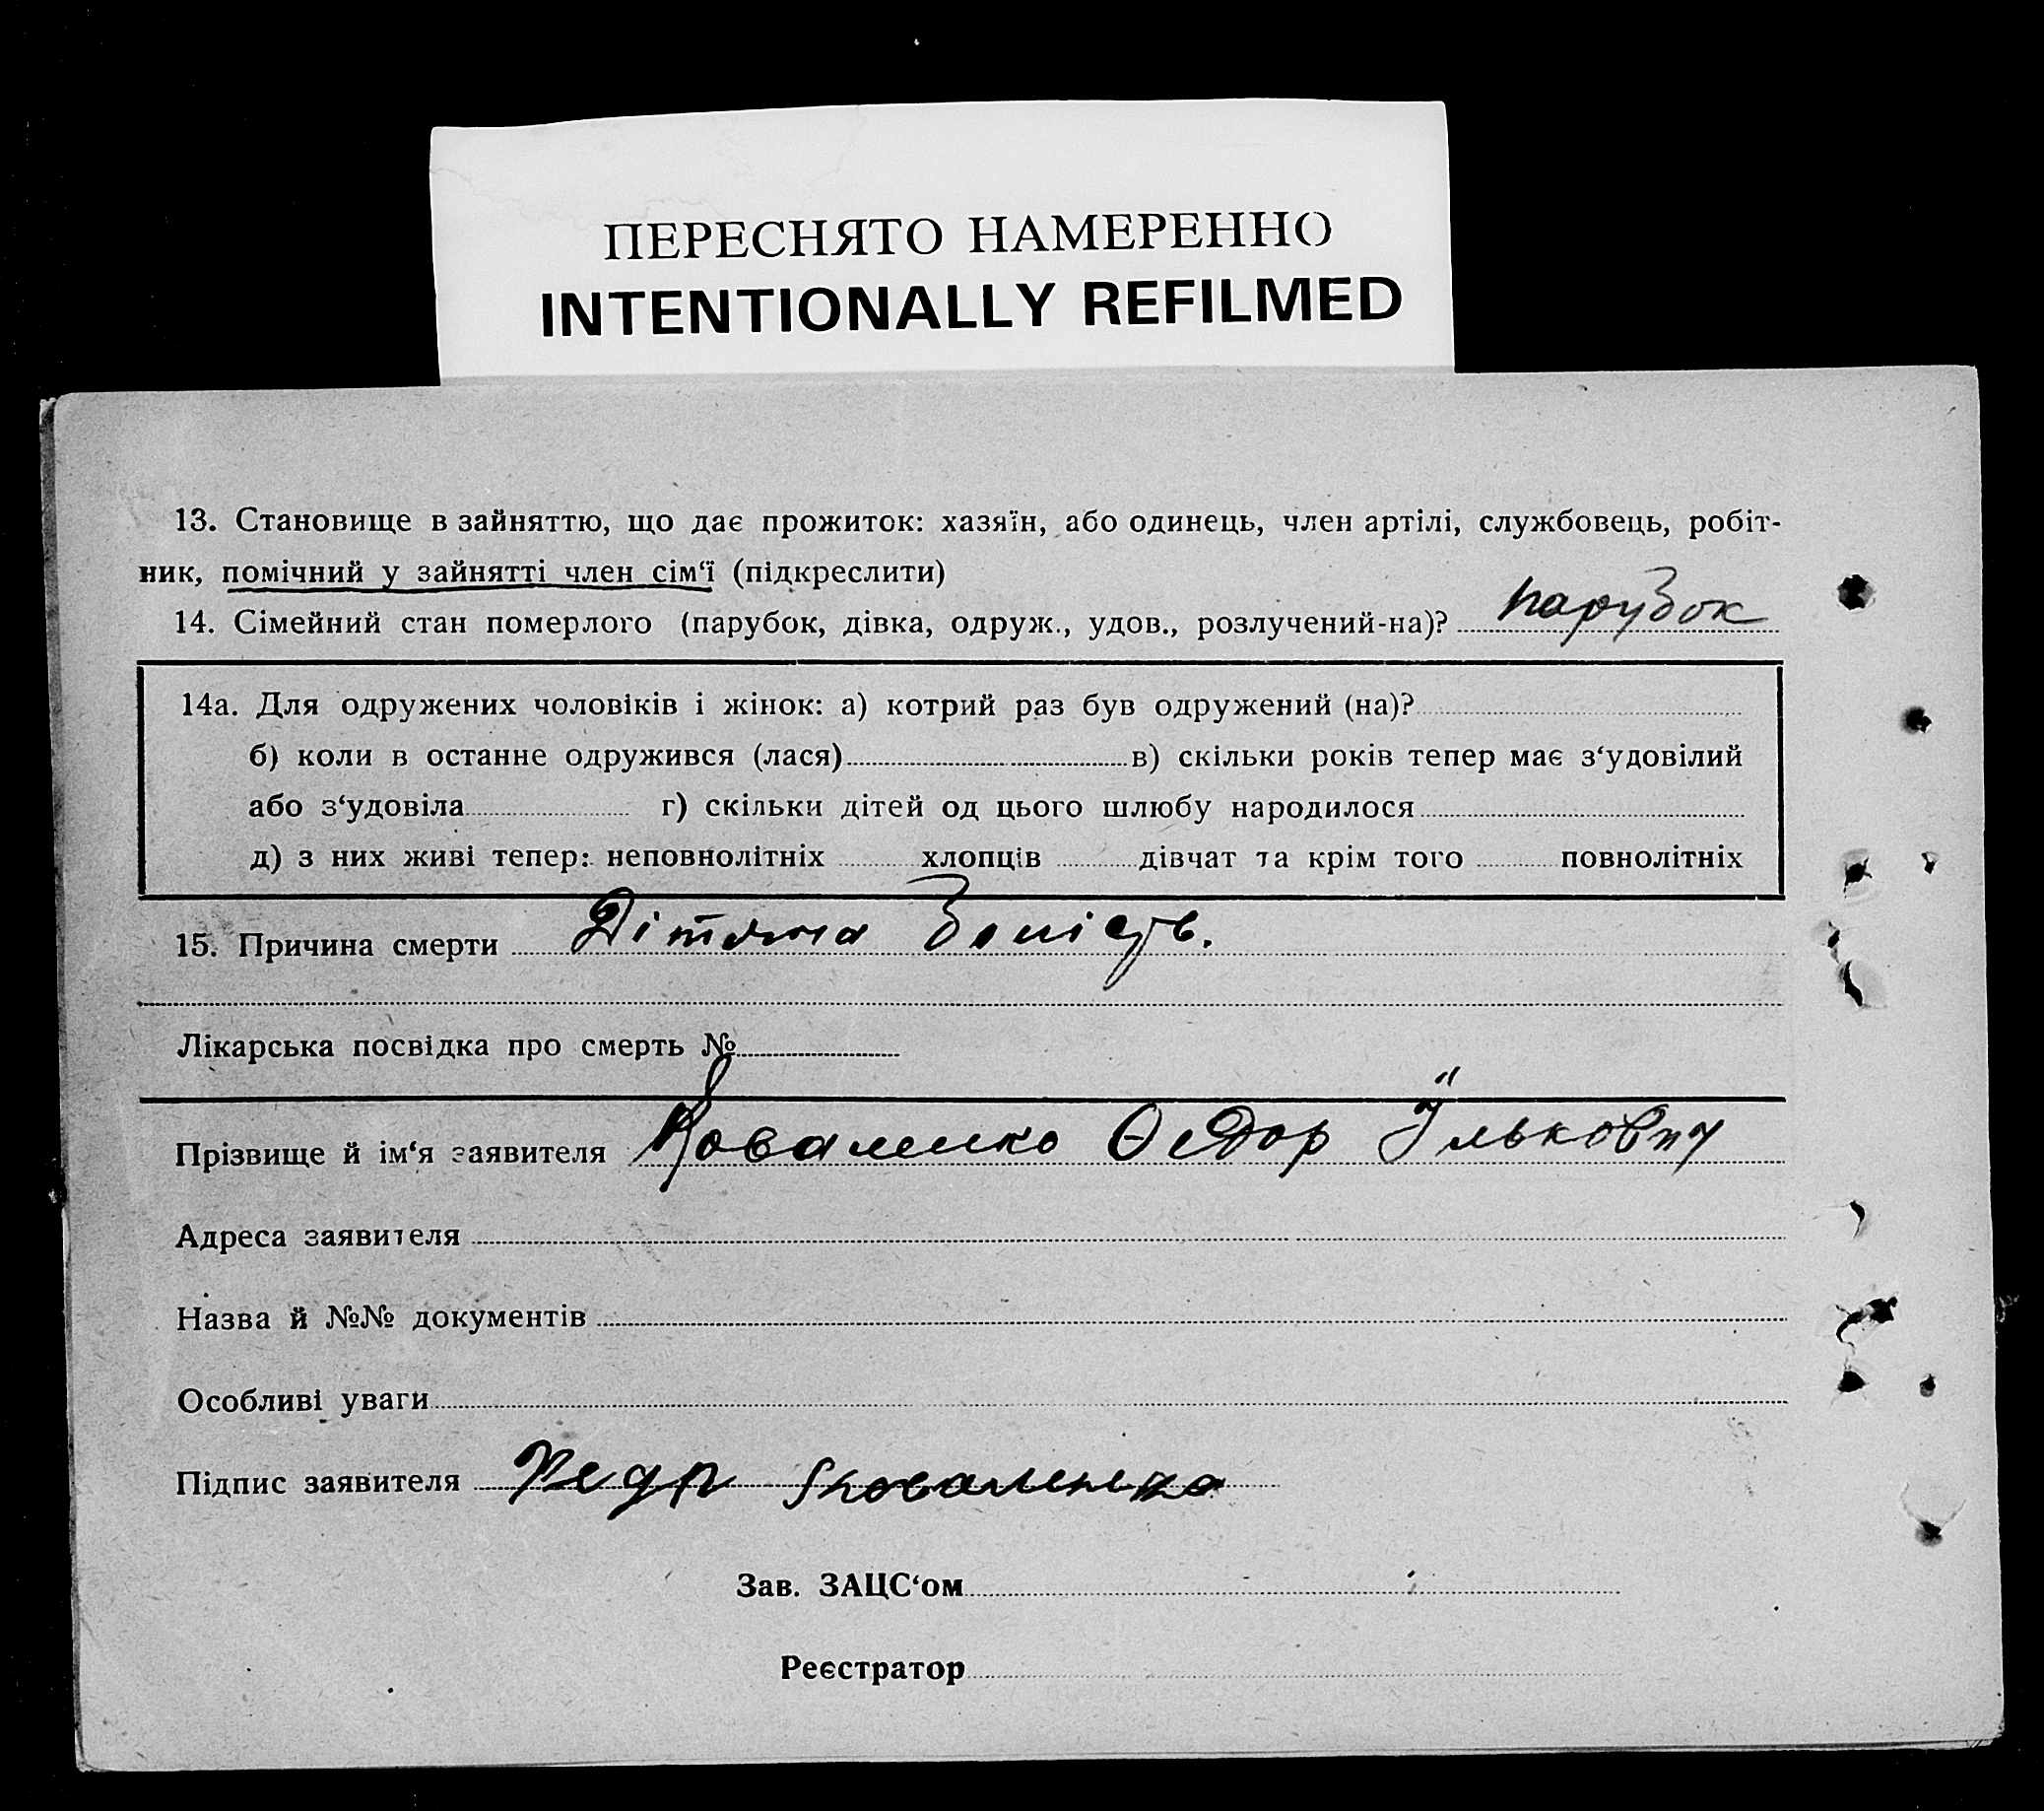 ПЕРЕСНЯТО НАМЕРЕННО
INTENTIONALLY REFILMED
13. Становище в зайняттю, що дає прожиток: хазяїн, або одинець, член артілі, службовець, робіт-
ник, помічний у зайнятті член сім‘ї (підкреслити)
14. Сімейний стан померлого (парубок, дівка, одруж., удов., розлучений-на)? парубок
14а. Для одружених чоловіків і жінок: а) котрий раз був одружений (на)?
б) коли в останне одружився (лася) в) скільки років тепер має з‘удовілий
або з‘удовіла г) скільки дітей од цього шлюбу народилося
д) з них живі тепер: неповнолітніх хлопців дівчат та крім того повнолітніх
15. Причина смерти Дітяча
Лікарська посвідка про смерть №
Прізвище й ім‘я заявителя Коваленко Ѳедор Ількович
Адреса заявителя
Назва й №№ документів
Особливі уваги
Підпис заявителя Коваленко
Зав. ЗАЦС‘ом
Реєстратор